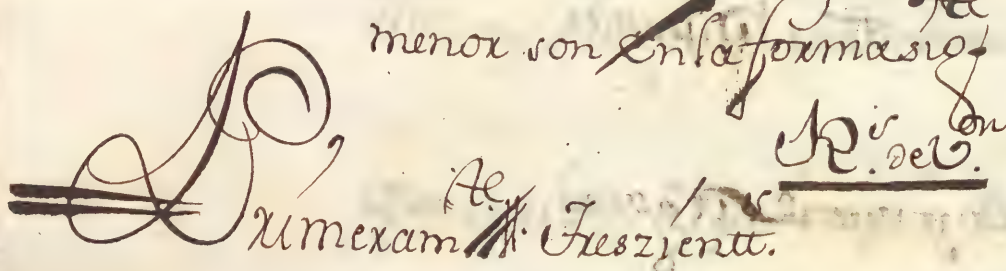 menor son En la forma sigte
R.s de V.on
Primeramte Treszientt.s